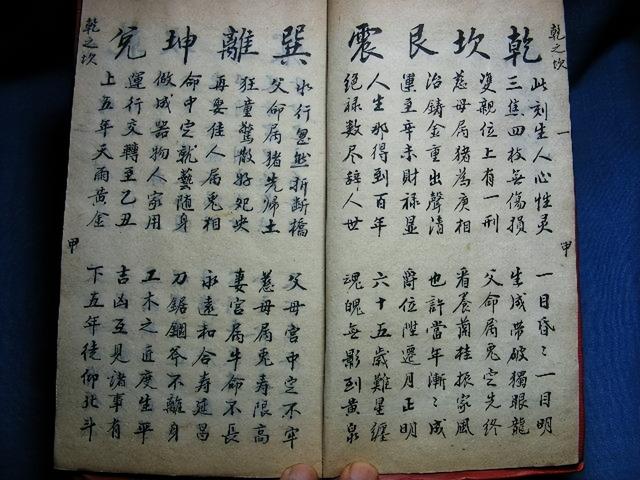 乾之坎
乾
坎
艮
震
一
甲
此刻生人心性灵
一目昏〻一目明
三焦四枝無傷損
生成帶破獨眼龍
雙親位上有一刑
父命属兎定先終
慈母属猪為庚相
看養蘭桂振家風
治鑄金重出聲清
也許當年漸〻成
運至辛未財祿显
爵位陞遷月正明
人生那得到百年
六十五歲難星纏
绝祿数尽辞人世
魂魄無影到黄泉
巽
離
坤
兌
水行忽然折断橋
父母宮中定不牢
父命属猪先帰土
慈母属兎寿限高
狂童驚散好妃央
妻宮属牛命不長
再娶佳人属兎相
永遠和合寿延昌
命中定就藝随身
刀鋸不離身
做成器物人家用
工木之近度生平
運行交轉至乙丑
吉凶互見諸事有
上五年天雨黄金
下五年徒仰北斗
乾之坎
甲